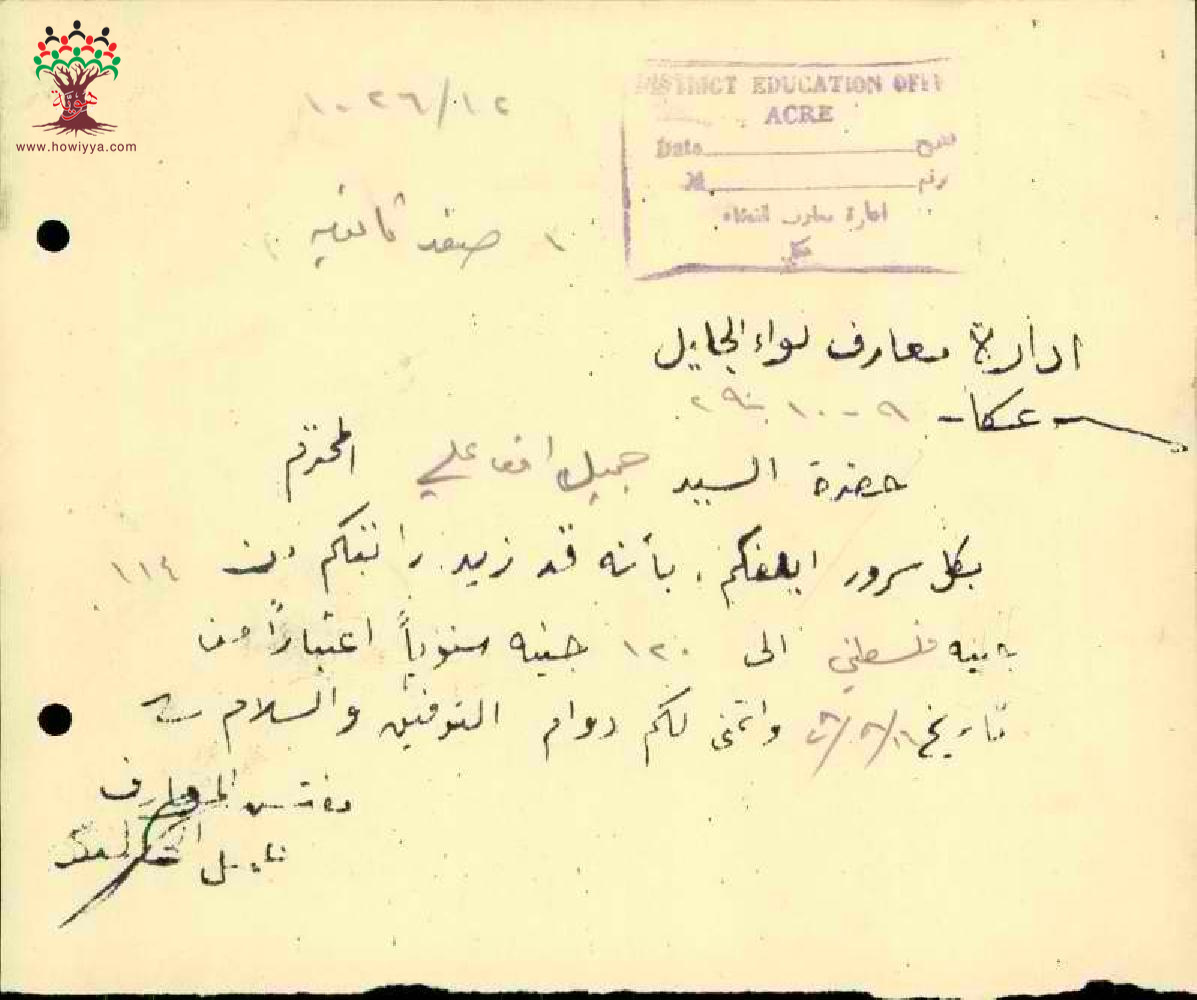 هوية
www.howiyya.com
١٠٢٦/١٢
DISTRICT EDUCATION OFFI
ACRE
Date تاريخ
رقم
ادارة معارف القضاء
عكا
١ صفد ثانوية
ادارة معارف لواء الجليل
عكا - ٩ - ١٠
حضرة السيد جميل علي المحترم
بكل سرور ابلغكم بأنه قد زيد راتبكم من ١١٤
جنيه فلسطيني الى ١٢٠ جنيه سنوياً اعتباراً من
تاريخ واتمنى لكم دوام التوفيق والسلام
مفتش المعارف